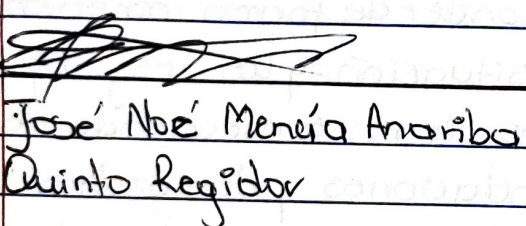 José Noé Mencía Anariba
Quinto Regidor